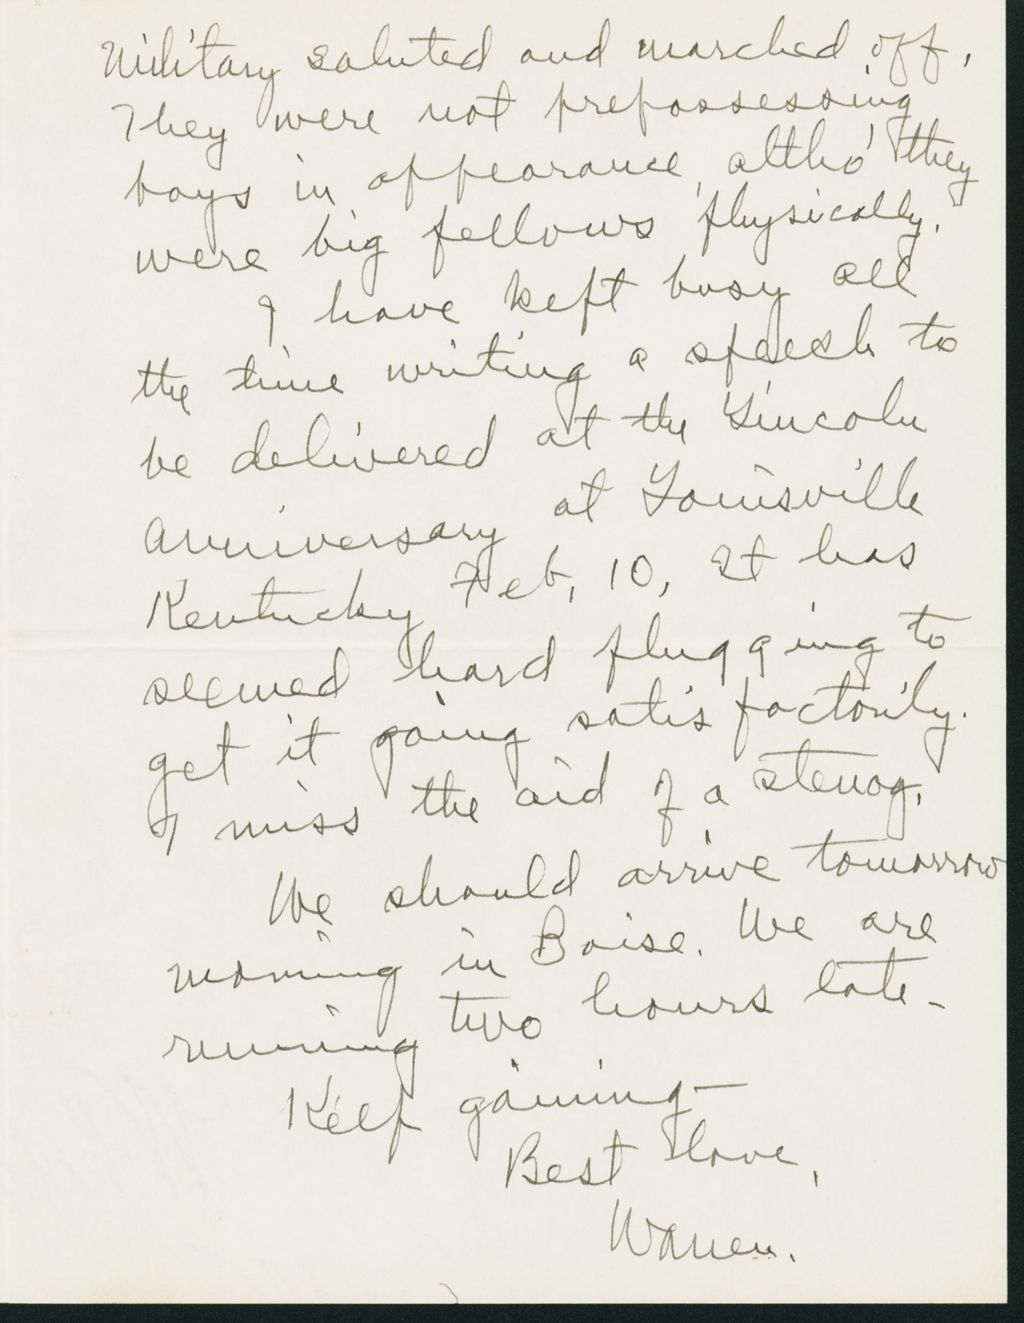 Military saluted and marched off.
They were not prepossessing
boys in appearance, altho' they
were big fellows physically.
I have kept busy all
the time writing a speech to
be delivered at the Lincoln
anniversary at Louisville
Kentucky Feb, 10, It has
seemed hard plugging to
get it going satisfactorily.
I miss the aid of a stenog.
We should arrive tomorrow
morning in Boise. We are
running two hours late-
Keep gaining-
Best love,
Warren.